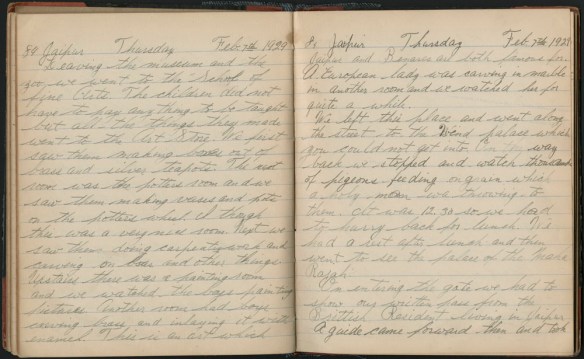 84 Jaipur Thursday Feb. 7th, 1929
Leaving the museum and the
zoo we went to the School of
fine Arts. The children did not
have to pay anything to be taught
but all the things they made
went to the Art Store. We first
saw them making boxes out of
brass and silver teapots. The next
room was the potters room and we
saw them making vases and pots
on the potters wheel. I though
this was a very nice room. Next we
saw them doing carpentry work and
carving on and other things
Upstairs there was a painting room
and we watched the boys painting
pictures. Another room had boys
carving brass and inlaying it with
enamel. This is an art which
85 Jaipur Thursday Feb. 7th 1929
Jaipur and are both famous for.
A European lady was carving in marble
in another room and we watched her for
quite a while.
We left this place and went along
the street to the Wend palace which
you could not get into. On way
back we stopped and watch thousands
of pigeons feeding on grain which
a holy man was throwing to
them. It was 12.30 so we had
to hurry back for lunch. We
had a rest after lunch and then
went to see the palace of the Maha
Rajah.
In entering the gate we had to
show our written pass from the
British Resident living in Jaipur
A guide came forward then and took